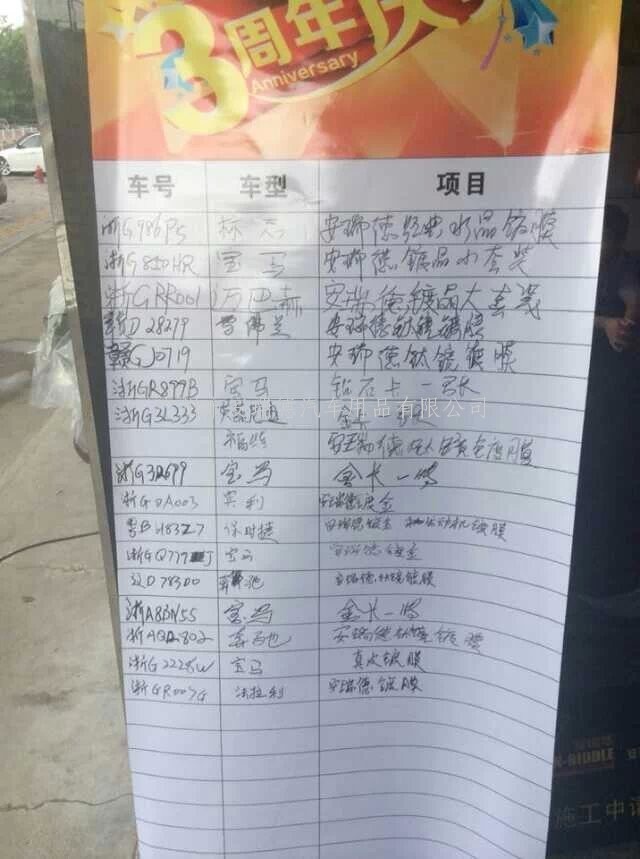 3周年庆
Anniversary
车号 车型 项目
浙G986P5 标志 安瑞德经典水晶镀膜
浙G850HR 宝马 安瑞德镀晶小套装
浙GRR001 安瑞德镀晶大套装
D28279 雪佛兰 安瑞德钛镜镀膜
赣GJ0719 安瑞德钛镜镀膜
浙GR897B 宝马 钻石卡一张
浙G3L333 金卡一张
福特 安瑞德
浙G3R699 宝马 金卡一张
浙GDA003 宾利 安瑞德镀金
粤BH83Z7 保时捷 安瑞德镀金 发动机镀膜
浙GQ777J 宝马 安瑞德镀金
D783D0 奔驰 安瑞德钛镜镀膜
浙A8BN55 宝马 金卡一张
浙AQD802 安瑞德钛镜镀膜
浙G2228W 宝马 真皮镀膜
浙GR007G 法拉利 安瑞德镀膜
汽车用品有限公司
N-RIDDLE
施工中请